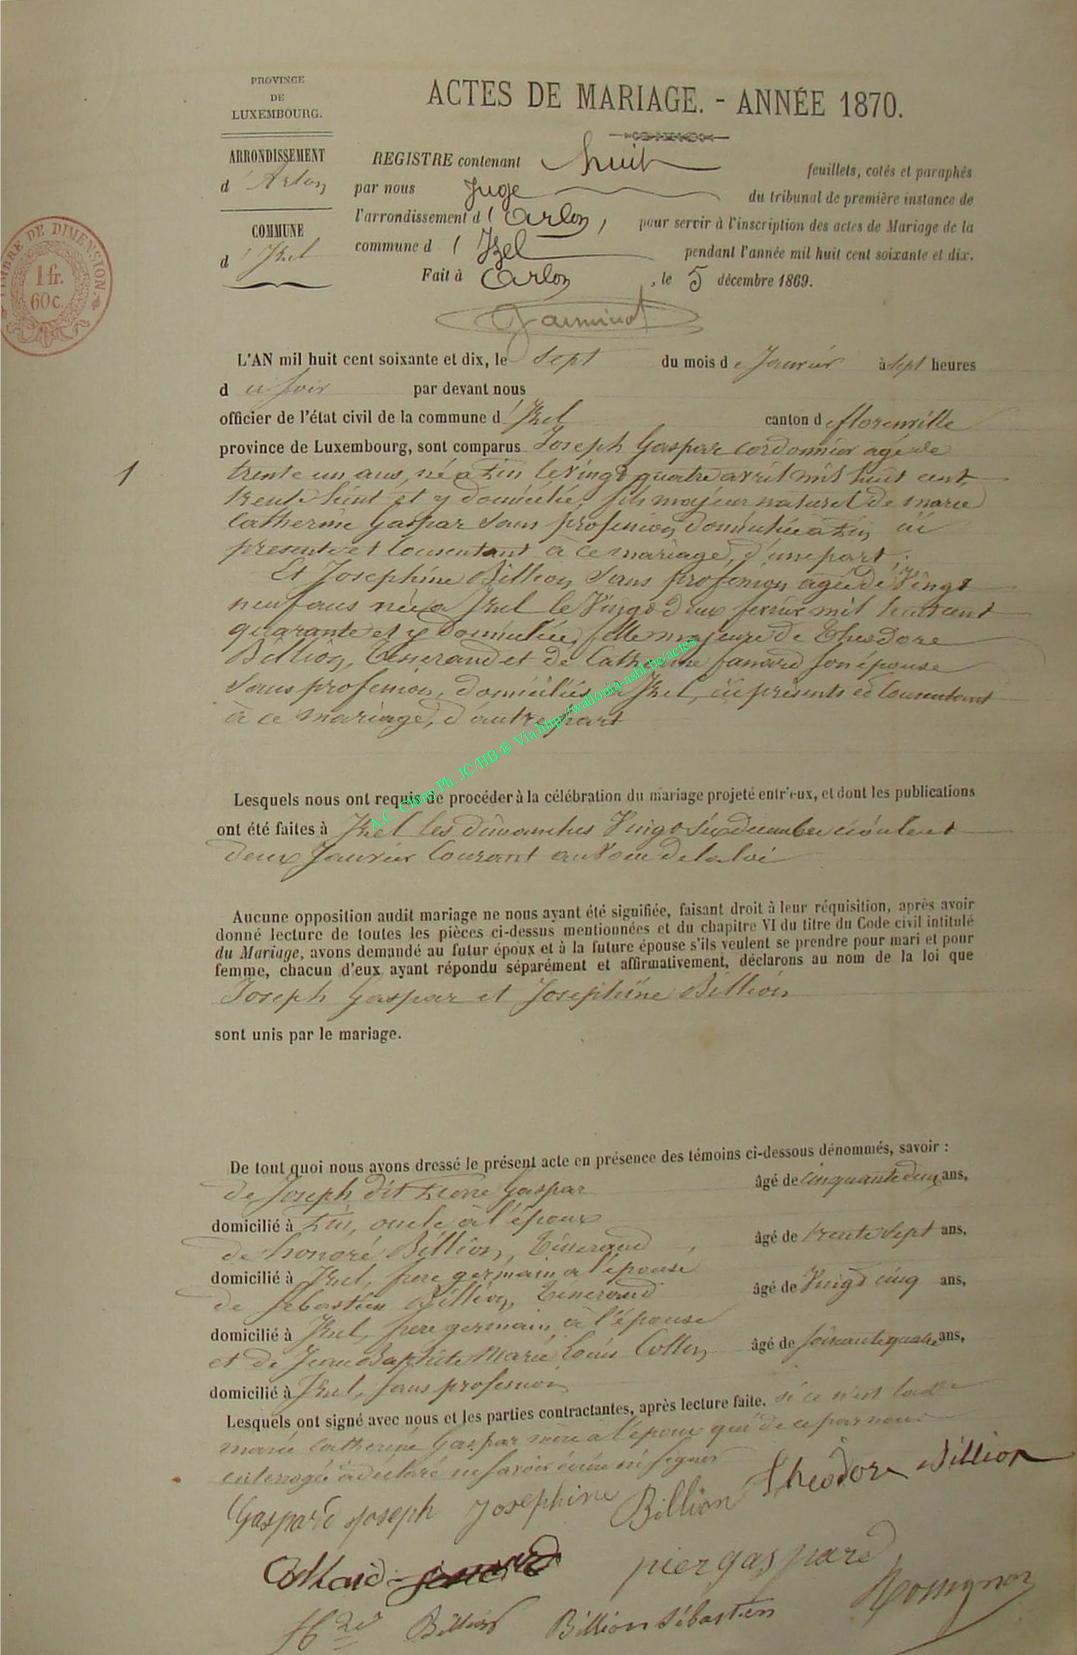 PROVINCE
DE
LUXEMBOURG.
ARRONDISSEMENT
d'Arlon
COMMUNE
d'Izel
TIMBRE DE DIMENSION.
1 fr.
60 c.
ACTES DE MARIAGE. - ANNÉE 1870.
REGISTRE contenant huit feuillets, cotés et paraphés
par nous Juge du tribunal de première instance de
l'arrondissement d'Arlon, pour servir à l'inscription des actes de Mariage de la
commune d'Izel pendant l'année mil huit cent soixante et dix.
Fait à Arlon, le 5 décembre 1869.
L'AN mil huit cent soixante et dix, le sept du mois de Janvier à sept heures
du soir par devant nous
officier de l'état civil de la commune d'Izel canton de florenville
province de Luxembourg, sont comparus Joseph Gaspar cordonnier agé de
1
trente un ans, né a le vingt quatre avril mil huit cent
trente huit et y domicilié, fils majeur naturel de marie
Catherine Gaspar sans profession domiciliée à ici
presente et consentant à ce mariage, d'une part.
Et Josephine Billion sans profession agée de Vingt
neuf ans née a Izel le Vingt deux fevrier mil huit cent
quarante et y domiciliée, fille majeure de Theodore
Billion, tisserand et de Catherine fanard son épouse
sans profession, domiciliés à Izel, ici présents et consentant
à ce mariage, d'autre part
A.C. Chiny Ph. JC/HB © Via http://wallonia-asbl.be/actes
Lesquels nous ont requis de procéder à la célébration du mariage projeté entr'eux, et dont les publications
ont été faites à Izel les dimanches Vingt six decembre écoulé et
deux Janvier Courant au Nom de la loi
Aucune opposition audit mariage ne nous ayant été signifiée, faisant droit à leur réquisition, après avoir
donné lecture de toutes les pièces ci-dessus mentionnées et du chapitre VI du titre du Code civil intitulé
du Mariage, avons demandé au futur époux et à la future épouse s'ils veulent se prendre pour mari et pour
femme, chacun d'eux ayant répondu séparément et affirmativement, déclarons au nom de la loi que
Joseph Gaspar et Josephine Billion
sont unis par le mariage.
De tout quoi nous avons dressé le présent acte en présence des témoins ci-dessous dénommés, savoir :
de Joseph dit Pierre Gaspar âgé de cinquante deux ans,
domicilié à oncle à l'époux
de honoré Billion, tisserand, âgé de trente sept ans,
domicilié à Izel, frere germain a l'épouse
de Sébastien Billion, tisserand âgé de Vingt cinq ans,
domicilié à Izel, frere germain à l'épouse
et de Jean Baptiste Marie Louis Collin âgé de soixante quatre ans,
domicilié à Izel, sans profession
Lesquels ont signé avec nous et les parties contractantes, après lecture faite. si ce n'est la dte
marie Catherine Gaspar mère a l'époux qui de ce par nous
enterrogée a déclaré ne savoir écrire ni signer
Gaspard joseph Josephine Billion Theodore Billion
pier gaspard
Hré Billion Billion Sébastien Rossignon